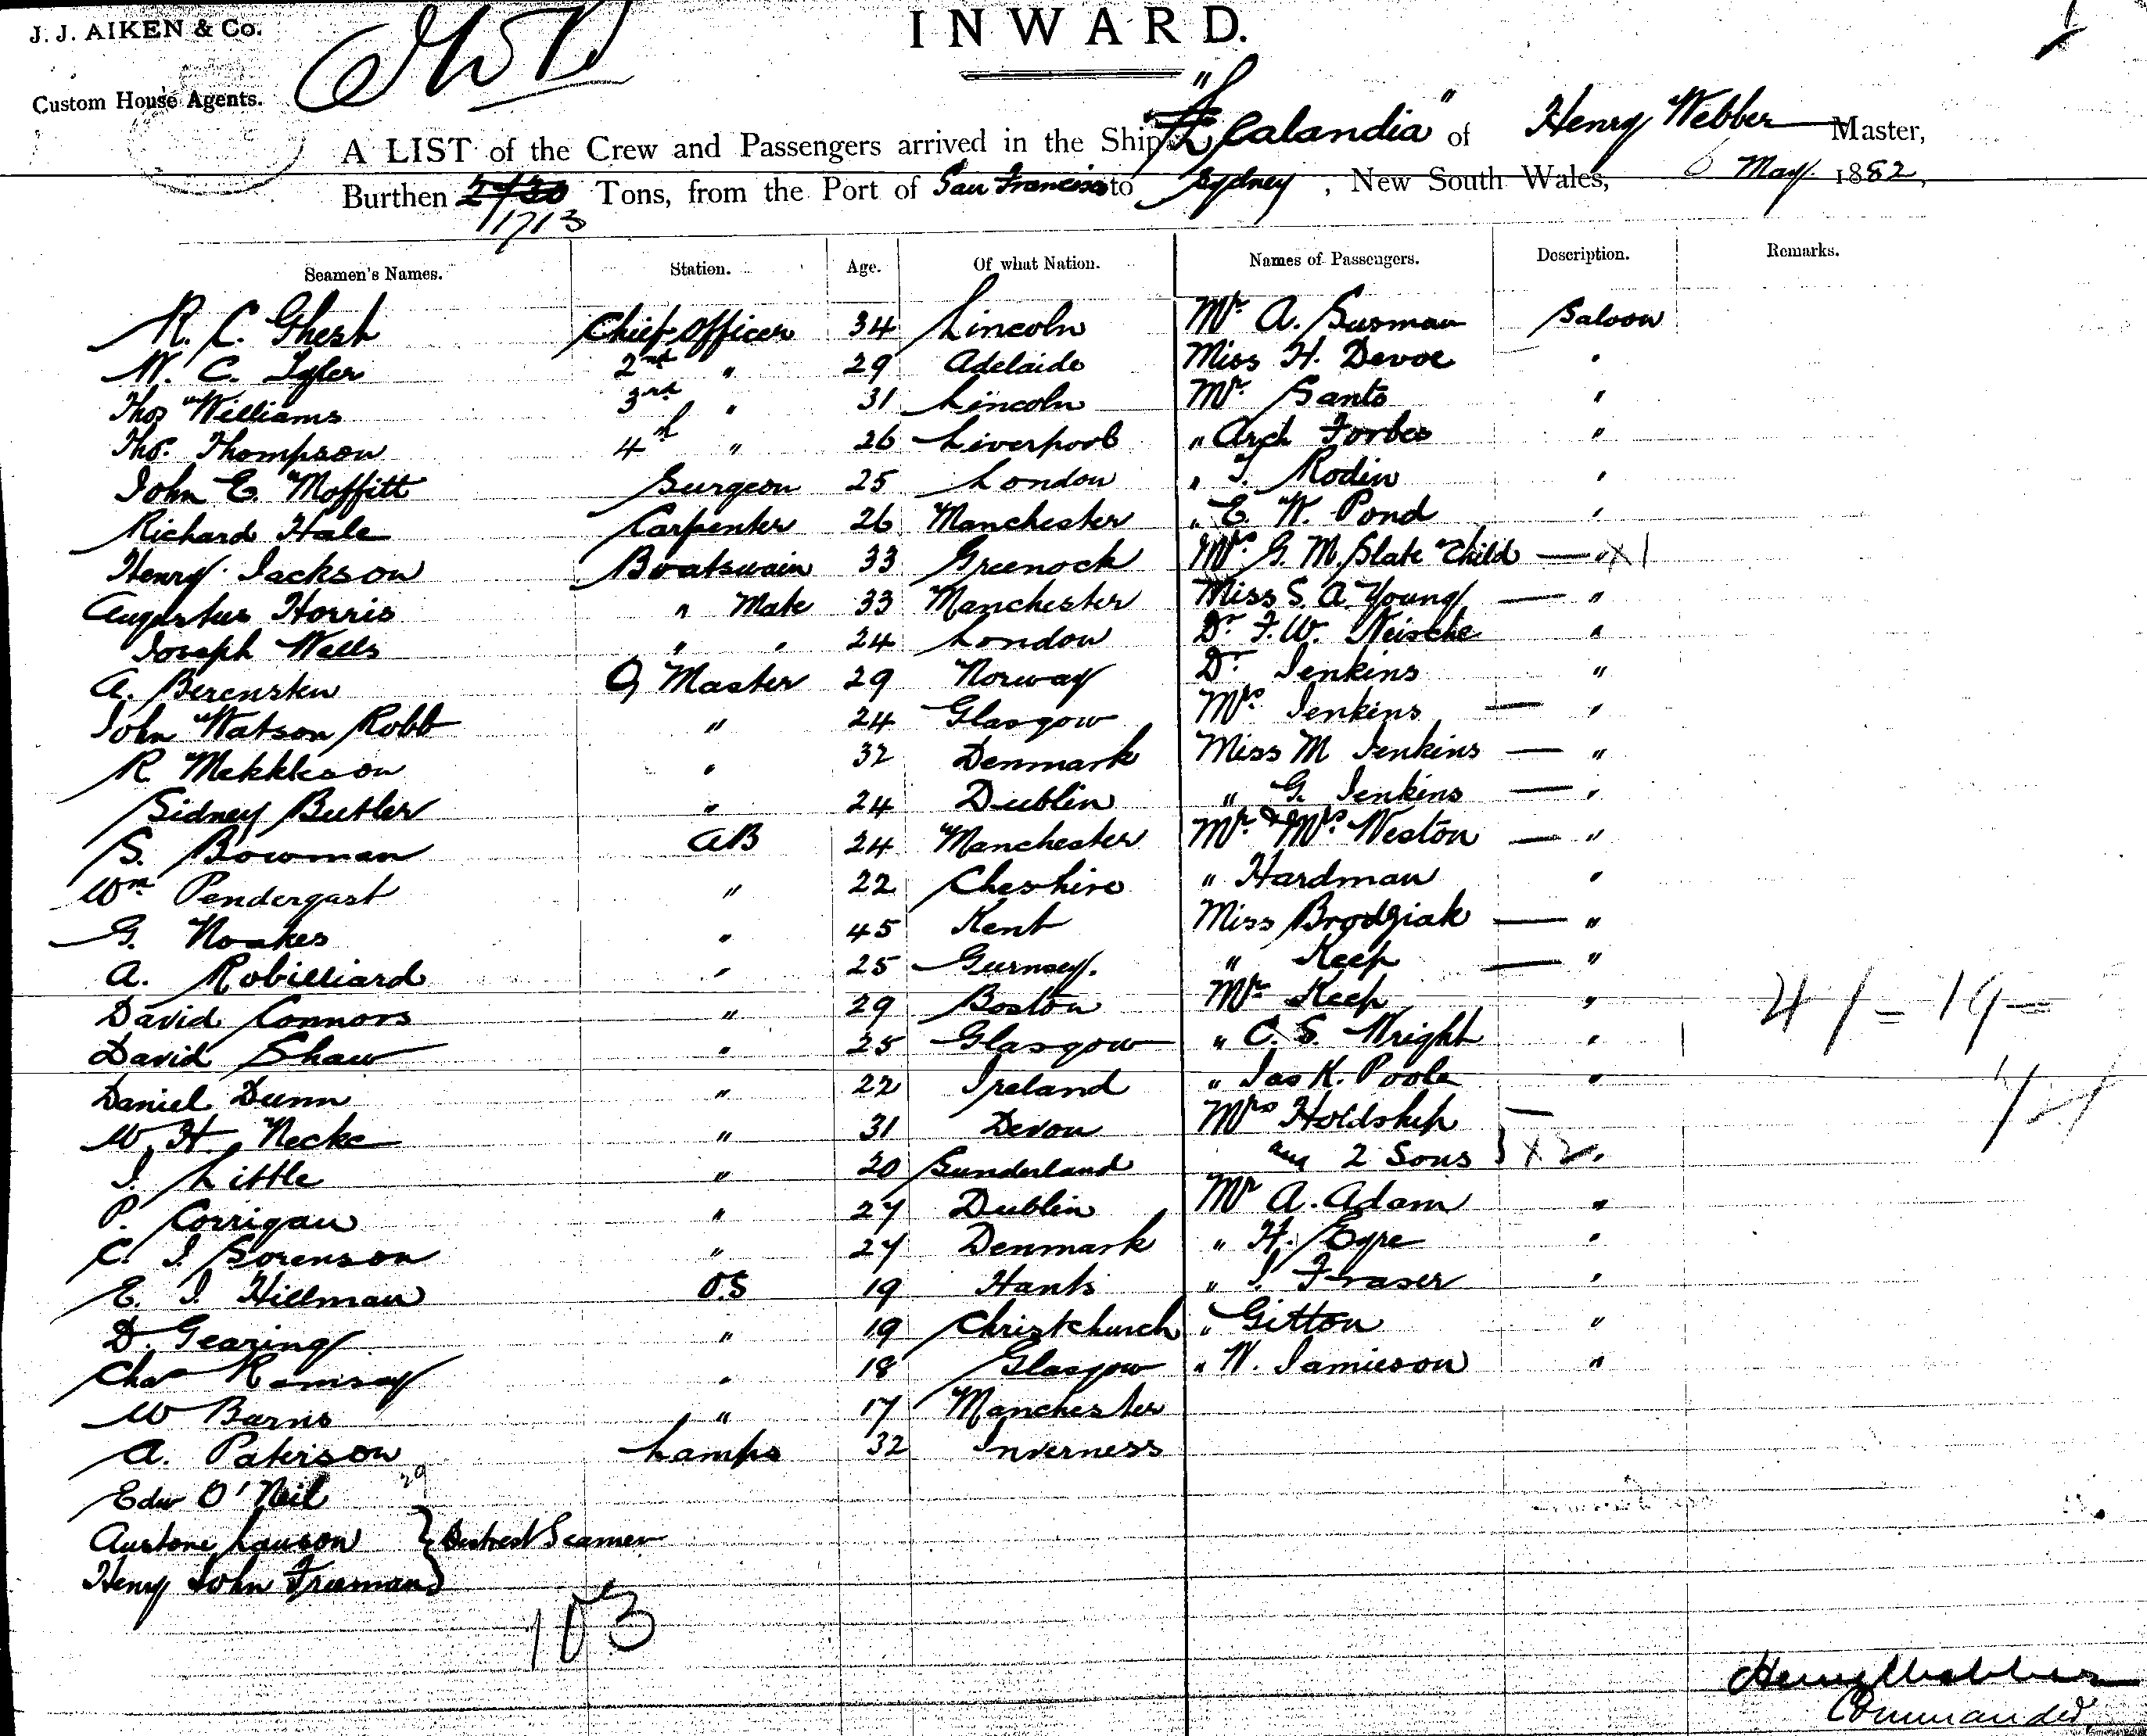 J. J. AIKEN & Co.
Custom House Agents.
INWARD.
A LIST of the Crew and Passengers arrived in the Ship "Zealandia" of Henry Webber Master,
Burthen 2730 Tons, from the Port of San Francisco to Sydney, New South Wales, 6 May 1882,
1713
Seamen's Names. Station. Age. Of what Nation. Names of Passengers. Description. Remarks.
R. C. Ghest Chief Officer 34 Lincoln Mr A. Susman Saloon
W. C. Tyler 2nd " 29 Adelaide Miss H. Devoe "
Thos Williams 3rd " 31 Lincoln Mr. Santo "
Tho. Thompson 4th " 26 Liverpool " Arch Forbes "
John E. Moffitt Surgeon 25 London " T. Rodin "
Richard Hale Carpenter 26 Manchester " E. W. Pond "
Henry Jackson Boatswain 33 Greenock Mrs. G. M. Slate Child — " X 1
Augustus Horris " Mate 33 Manchester Miss S. A. Young — "
Joseph Wells " " 24 London Dr. F. W. Neische "
A. Berensten Q Master 29 Norway Dr. Jenkins "
John Watson Robb " 24 Glasgow Mrs. Jenkins — "
R 32 Denmark Miss M Jenkins — "
Sidney Butler " 24 Dublin " G. Jenkins — "
S. Bowman AB 24 Manchester Mr. & Mrs. Weston — "
Wm Pendergast " 22 Cheshire " Hardman "
G. Noakes " 45 Kent Miss Brodziak — "
A. Robilliard " 25 Gurnsey. " Keep — "
David Connors " 29 Boston Mr Keep "
David Shaw " 25 Glasgow " C. S. Wright "
Daniel Dunn " 22 Ireland " Jas K. Poole "
W. H. Necke " 31 Devon Mrs Holdship —
J. Little " 20 Sunderland and 2 Sons } X 2 "
P. Corrigan " 27 Dublin Mr A. Adam "
C. J. Sorenson " 27 Denmark " H. Eyre "
E. J. Hillman OS 19 Hants " J. Fraser "
D. Gearing " 19 Christchurch " Gitton "
Chas Ramsay " 18 Glasgow " W. Jamieson "
W Barns " 17 Manchester
A. Paterson Lamps 32 Inverness
Edw O'Neil 29
Lawson } Distrest Seamen
Henry John Freeman
103
Henry Webber
Commander,